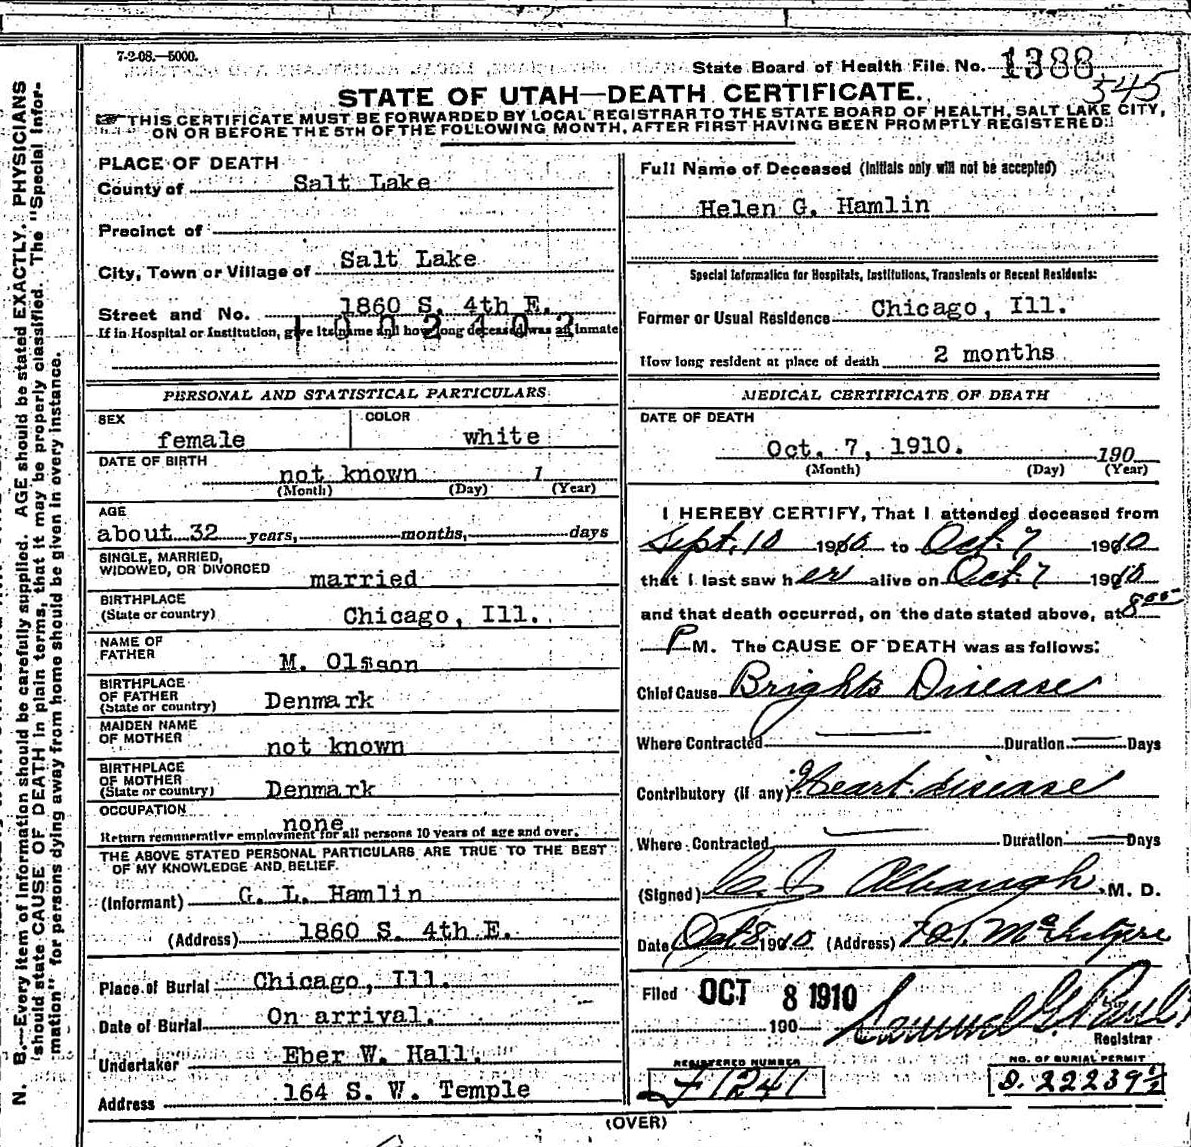 7-2-08.—5000.
State Board of Health File No. 1388
545
STATE OF UTAH—DEATH CERTIFICATE.
THIS CERTIFICATE MUST BE FORWARDED BY LOCAL REGISTRAR TO THE STATE BOARD OF HEALTH, SALT LAKE CITY,
ON OR BEFORE THE 5TH OF THE FOLLOWING MONTH, AFTER FIRST HAVING BEEN PROMPTLY REGISTERED.
PLACE OF DEATH
County of Salt Lake
Precinct of
City, Town or Village of Salt Lake
Street and No. 1860 S. 4th E.
1002402
If in Hospital or Institution, give its name and how long deceased was an inmate
PERSONAL AND STATISTICAL PARTICULARS
SEX female COLOR white
DATE OF BIRTH
not known 1
(Month) (Day) (Year)
AGE
about 32 years, months, days
SINGLE, MARRIED,
WIDOWED, OR DIVORCED married
BIRTHPLACE
(State or country) Chicago, Ill.
NAME OF
FATHER M. Olsson
BIRTHPLACE
OF FATHER
(State or country) Denmark
MAIDEN NAME
OF MOTHER not known
BIRTHPLACE
OF MOTHER
(State or country) Denmark
OCCUPATION
none
Return remunerative employment for all persons 10 years of age and over.
THE ABOVE STATED PERSONAL PARTICULARS ARE TRUE TO THE BEST
OF MY KNOWLEDGE AND BELIEF.
(Informant) G. L. Hamlin
(Address) 1860 S. 4th E.
Place of Burial Chicago, Ill.
Date of Burial On arrival.
Undertaker Eber W. Hall.
Address 164 S. W. Temple
Full Name of Deceased (Initials only will not be accepted)
Helen G. Hamlin
Special Information for Hospitals, Institutions, Transients or Recent Residents:
Former or Usual Residence Chicago, Ill.
How long resident at place of death 2 months
MEDICAL CERTIFICATE OF DEATH
DATE OF DEATH
Oct. 7, 1910. 190
(Month) (Day) (Year)
I HEREBY CERTIFY, That I attended deceased from
Sept. 10 1910 to Oct. 7 1910
that I last saw her alive on Oct. 7 1910
and that death occurred, on the date stated above, at 8
P M. The CAUSE OF DEATH was as follows:
Chief Cause Brights Disease
Where Contracted Duration Days
Contributory (if any) Heart disease
Where Contracted Duration Days
(Signed) Albaugh M. D.
Date Oct 8 1910 (Address)
Filed OCT 8 1910
190
Registrar
REGISTERED NUMBER
1241
NO. OF BURIAL PERMIT
D. 22239½
(OVER)
N. B.—Every item of information should be carefully supplied. AGE should be stated EXACTLY. PHYSICIANS
should state CAUSE OF DEATH in plain terms, that it may be properly classified. The "Special Infor-
mation" for persons dying away from home should be given in every instance.